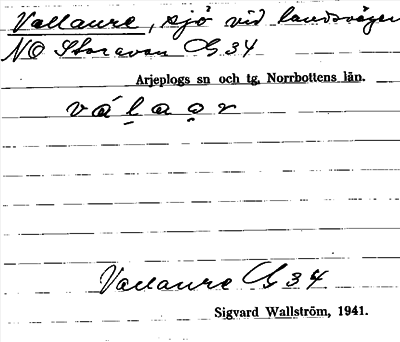 Vallaure, sjö vid landsvägen
NO Storavan G 34
Arjeplogs sn och tg, Norrbottens län.
vál̠ao̠r
Vallaure G 34
Sigvard Wallström, 1941.